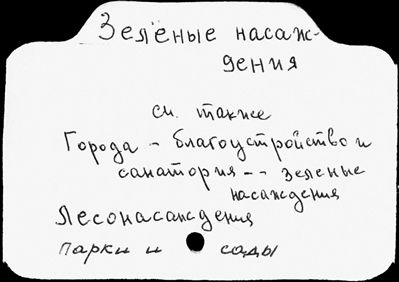 Зелёные насаж-
дения
см. также
Города - благоустройство и
санатория -- зеленые
насаждения
Лесонасаждения
парки и сады